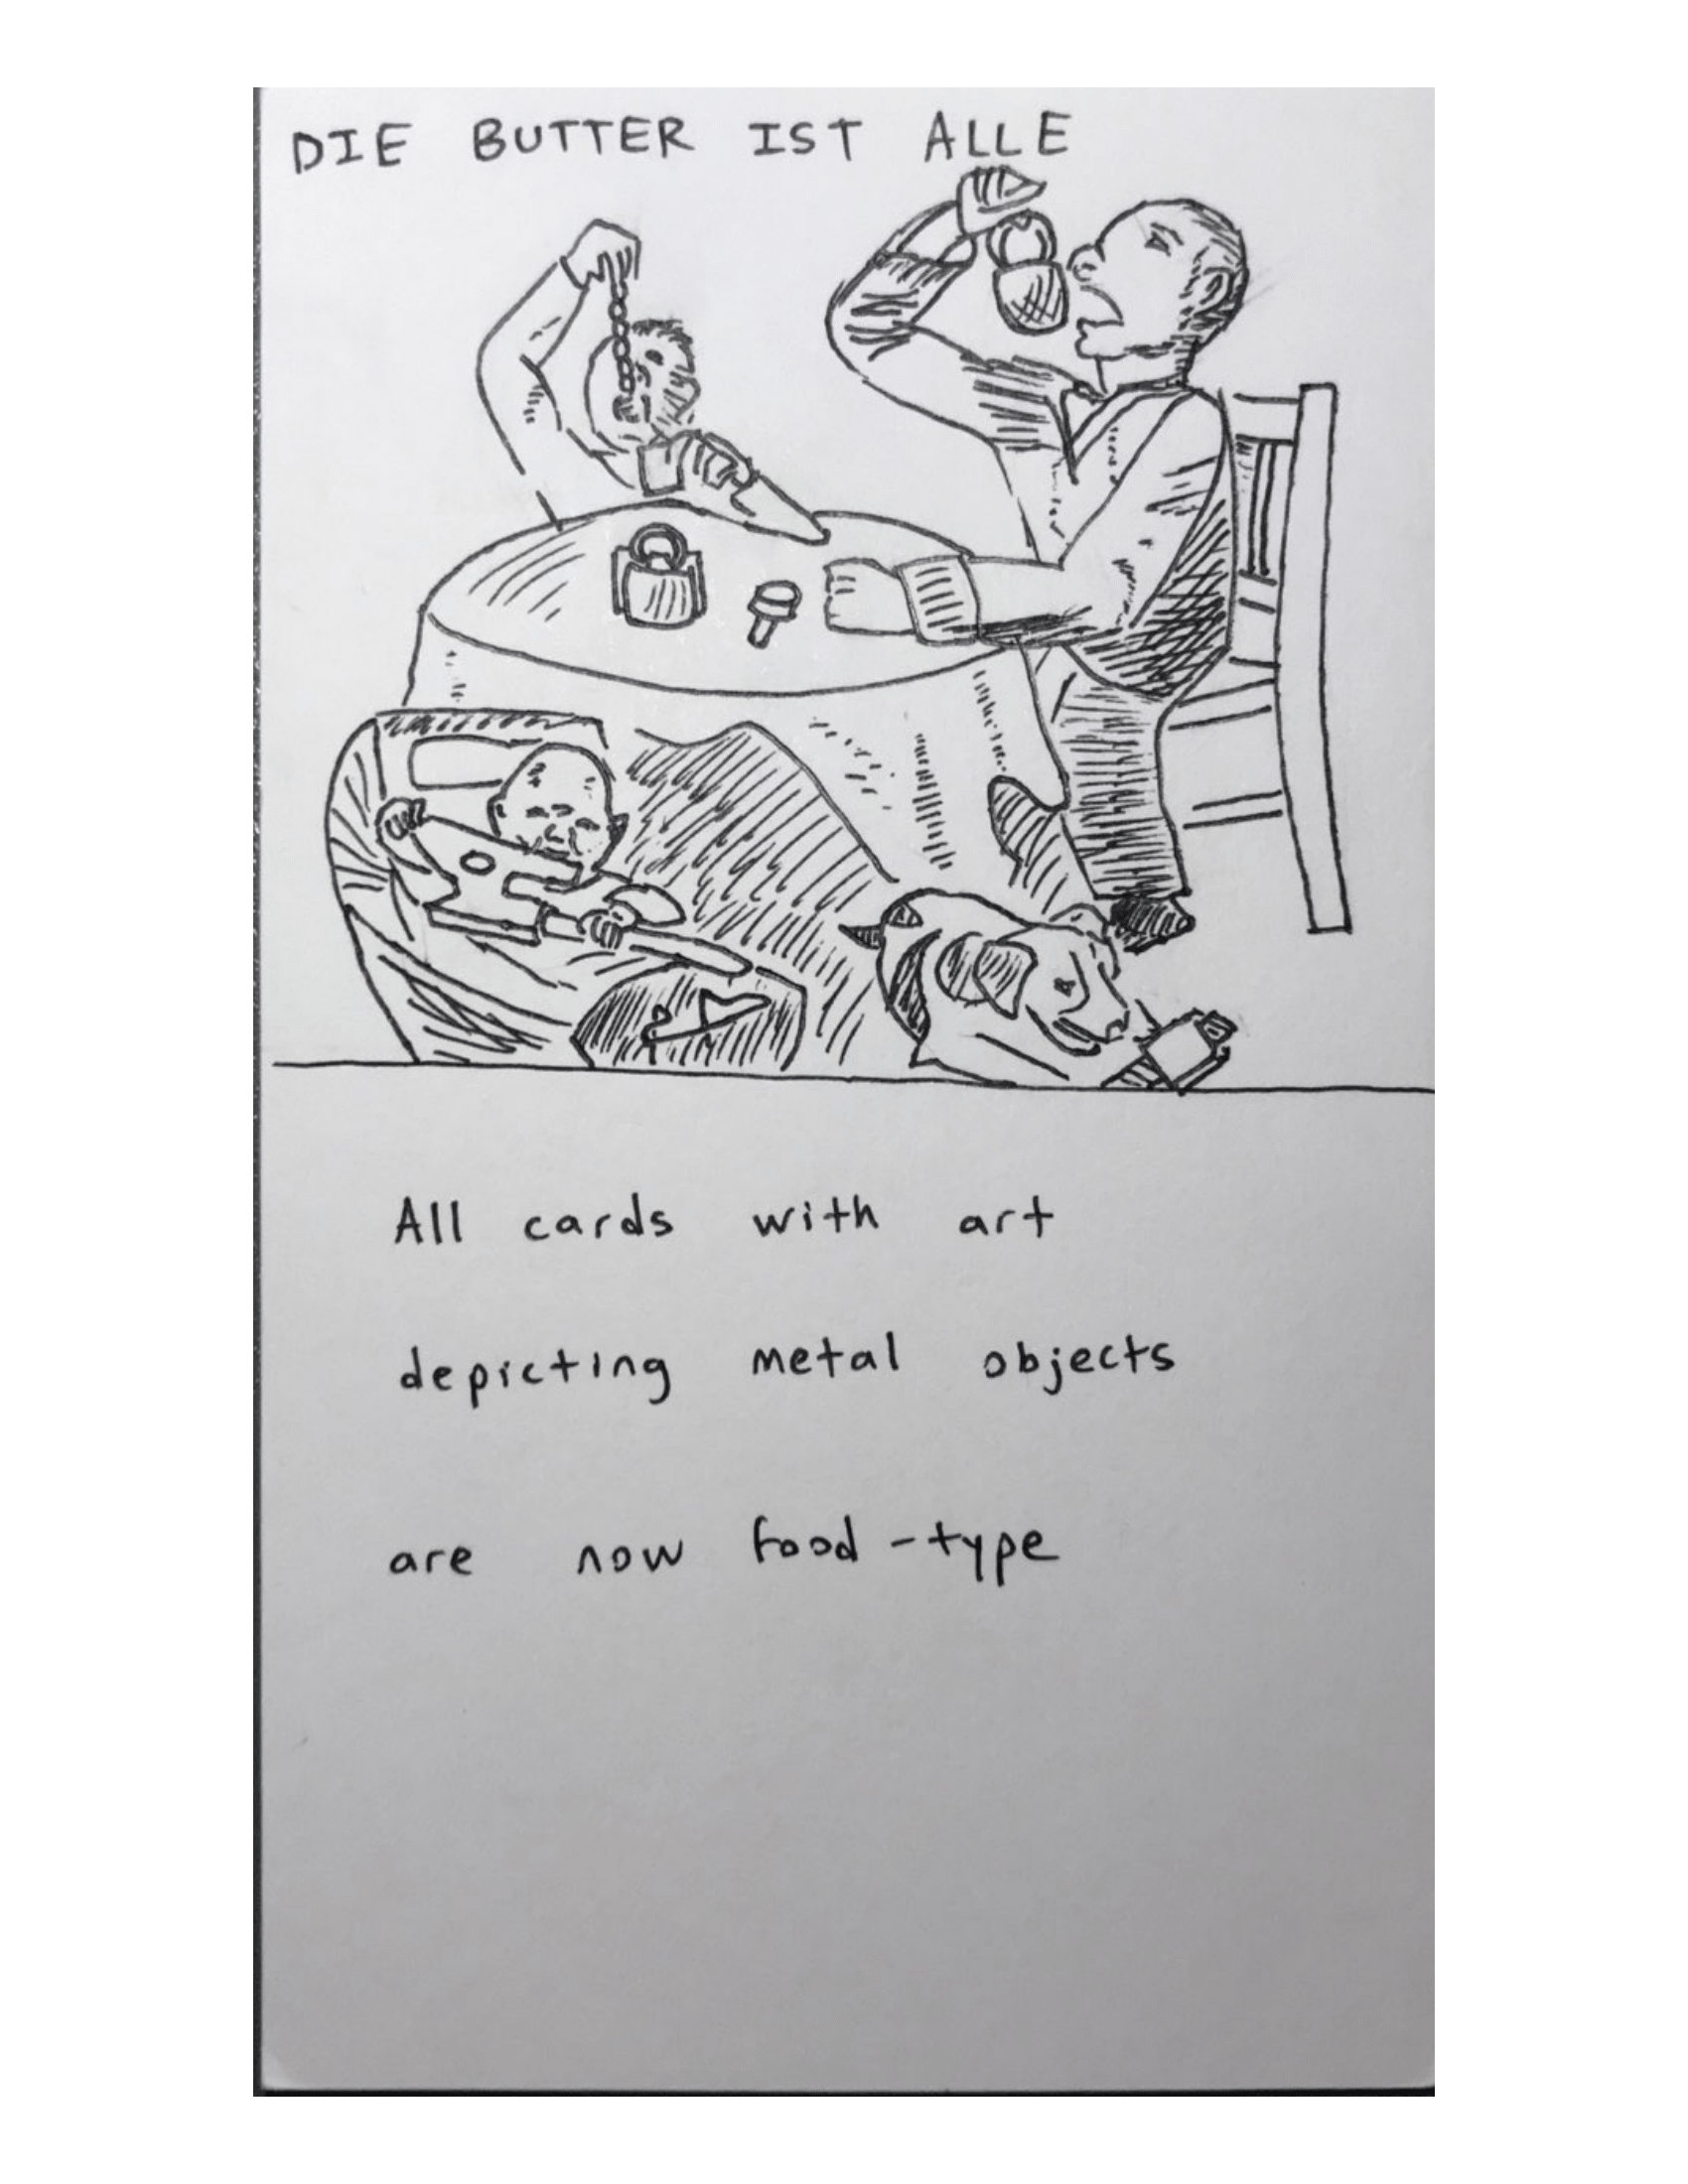 DIE BUTTER IST ALLE
All cards with art
depicting metal objects
are now food-type